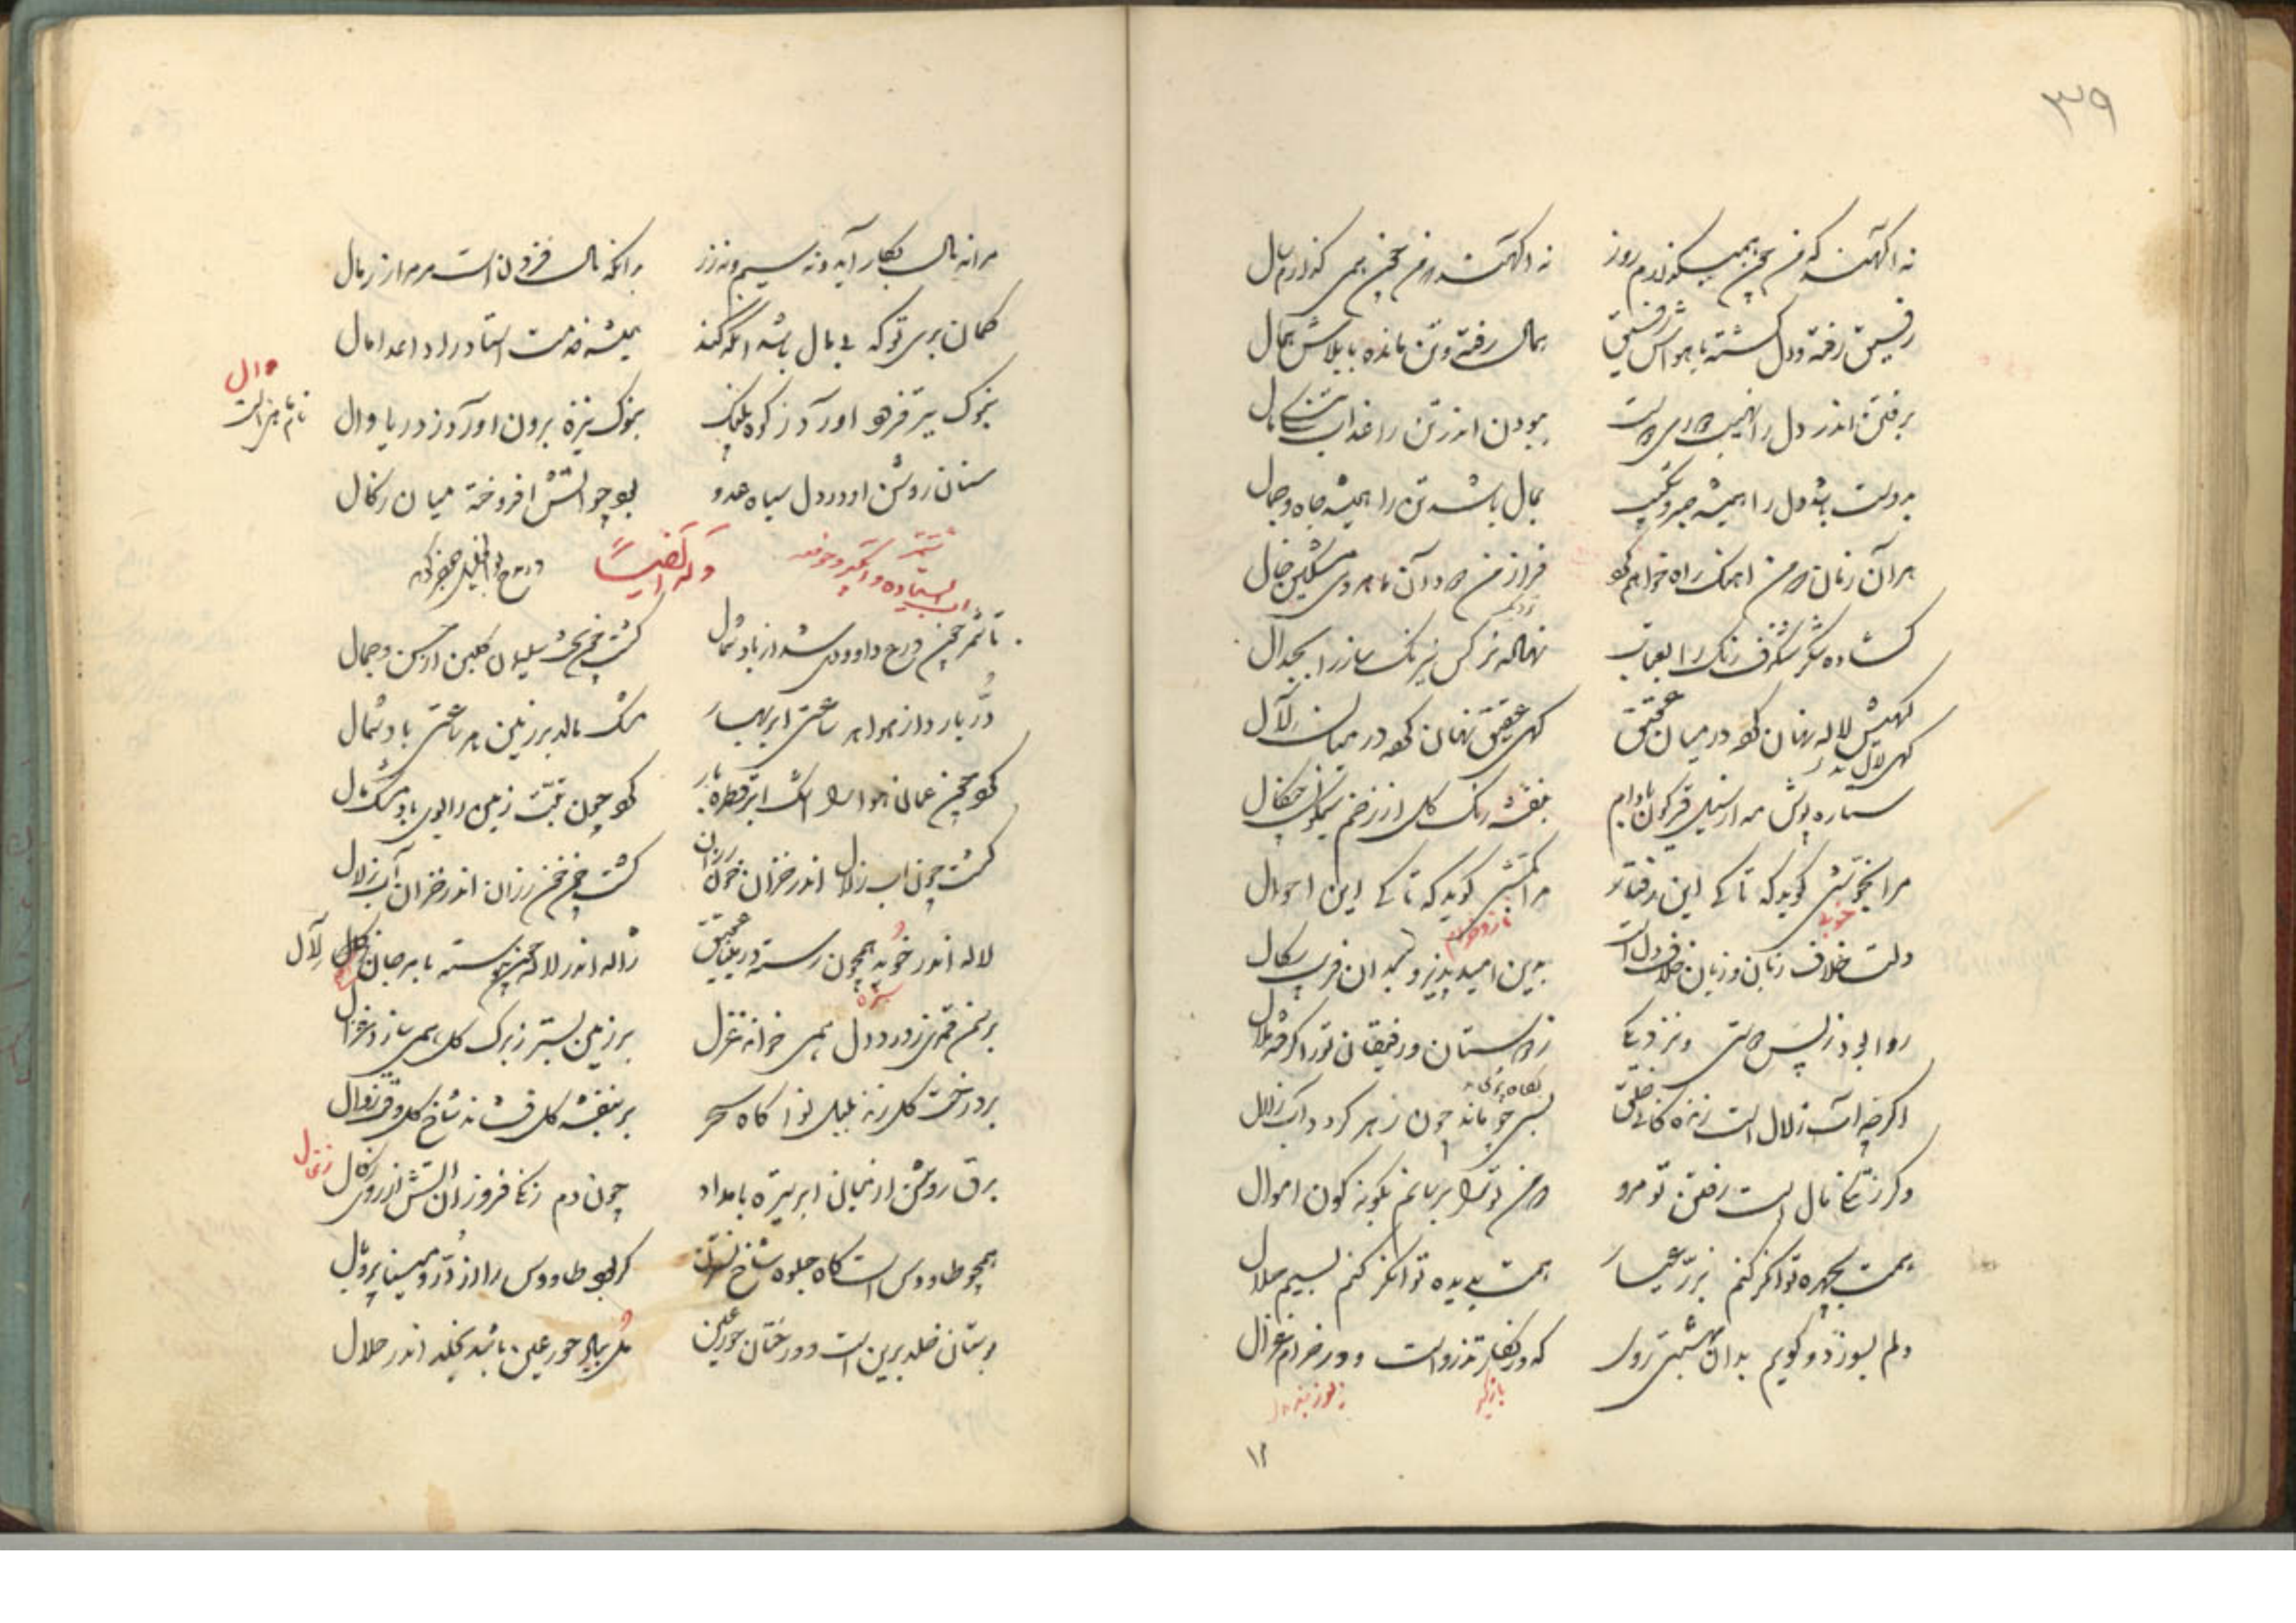 ۳۹
نه آگهند که من چون همیگذارم روز نه آگهند که من چون همی گذارم سال
رفیق رفته و دل گشته با هواش رفیق بمال رفته و تن مانده با بلاش همال
برفتن اندر دل را نهیب ببودن اندر تن را عذاب
بدوست باشد دل را همیشه صبر و شکیب بمال باشد تن را همیشه جاه و جمال
هر آن زمان که من آهنگ راه خواهم کرد فراز من دود آن ماهروی مشکین خال
گشاده شکر شنگرف رنگ را بعتاب نهاده نرگس نیرنگ ساز را بجدال
گهیش لاله نهان کرده در میان عقیق گهی عقیق نهان کرده در میان لآل
گهی لال بدر
ستاره پوش مه از نیل قیرگون بادام بنفشه رنگ گل از زخم سیمگون چنگال
مرا بخوبی گوید که تا کی این رفتار مرا بکشی گوید که تا کی این احوال
خوبی ناز و خرام
دلت خلاف زبان و زبان خلاف دل است بدین امید پذیر و بدان فریب سگال
روا بود ز پس دوستی و نزدیکی ز دوستان و رفیقان ترا گرفته ملال
اگرچه آب زلال است زندگانی خلق بسی چو ماند چون زهر گردد آب زلال
وگر ز تنگی مال است رفتن تو مرو که من ترا برسانم بگونه گون اموال
همت بچهره توانگر کنم بزر عیار همت بدیده توانگر کنم بسیم حلال
دلم بسوزد و گویم بدان بهشتی روی که در کنار تذرو است و در خرام غزال
۱۲
مرا نه مال بکار آید و نه سیم و نه زر برانکه مال فزون است مر مرا ز رمال
گمان بری تو که بی مال باشد آنکه کند همیشه خدمت استاد راد اعدا مال
بنوک تیر فرود آورد ز کوه پلنگ بنوک نیزه برون آورد ز دریا وال
وال
نام ماهی است
سنان روشن او در دل سیاه عدو بود چو آتش افروخته میان زگال
وله ایضاً در مدح ابوالخلیل جعفر گوید
تا شمر چون درع داوودی شد از باد شمال گشت چون تخت سلیمان گلبن از حسن و جمال
در ببارد از هوا هر ساعتی ابر بهار مشک مالد بر زمین هر ساعتی باد شمال
کرد چون عمان هوا را اشک ابر قطره بار کرد چون تبت زمین را بوی باد مشک مال
گشت چون آب زلال اندر خزان خون رزان گشت چون خون رزان اندر خزان آب زلال
لاله اندر خوید همچون رسته در مینا عقیق ژاله اندر لاله چون پیوسته با مرجان لآل
سبزه
بر سمن قمری ز درد دل همی خواند غزل بر زمین بستر ز برگ گل همی سازد غزال
بر درخت گل زند بلبل نوا گاه سحر بر بنفشه گل فشاند شاخ گل وقت زوال
برق روشن از میان ابر تیره بامداد چون دم زنگی فروزان آتش از روی زگال
زغال
همچو طاووس است گاه جلوه شاخ نسترن گر بود طاووس را از در و مینا پر و بال
بوستان خلد برین است و درختان حور عین گل بجای حور عین باشد بخلد اندر حلال